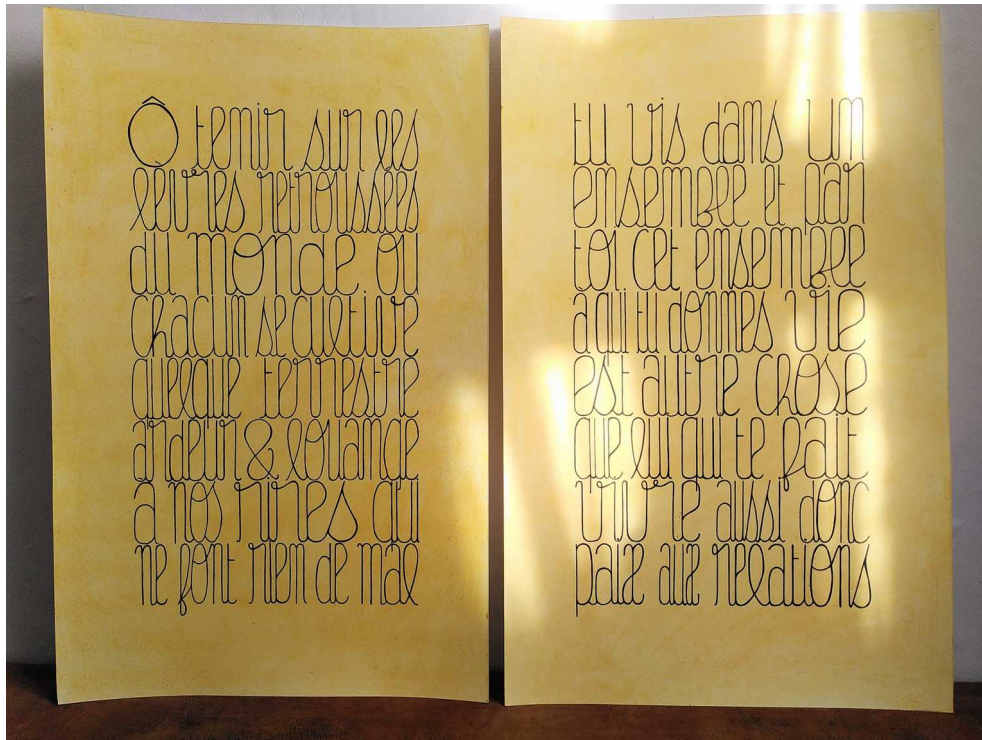 Ô tenir sur les
lèvres retroussées
du monde où
chacun se cultive
quelque terrestre
ardeur & louange
à nos rires qui
ne font rien de mal
tu vis dans un
ensemble et par
toi cet ensemble
à qui tu donnes vie
est autre chose
que lui qui te fait
vivre aussi donc
paix aux relations